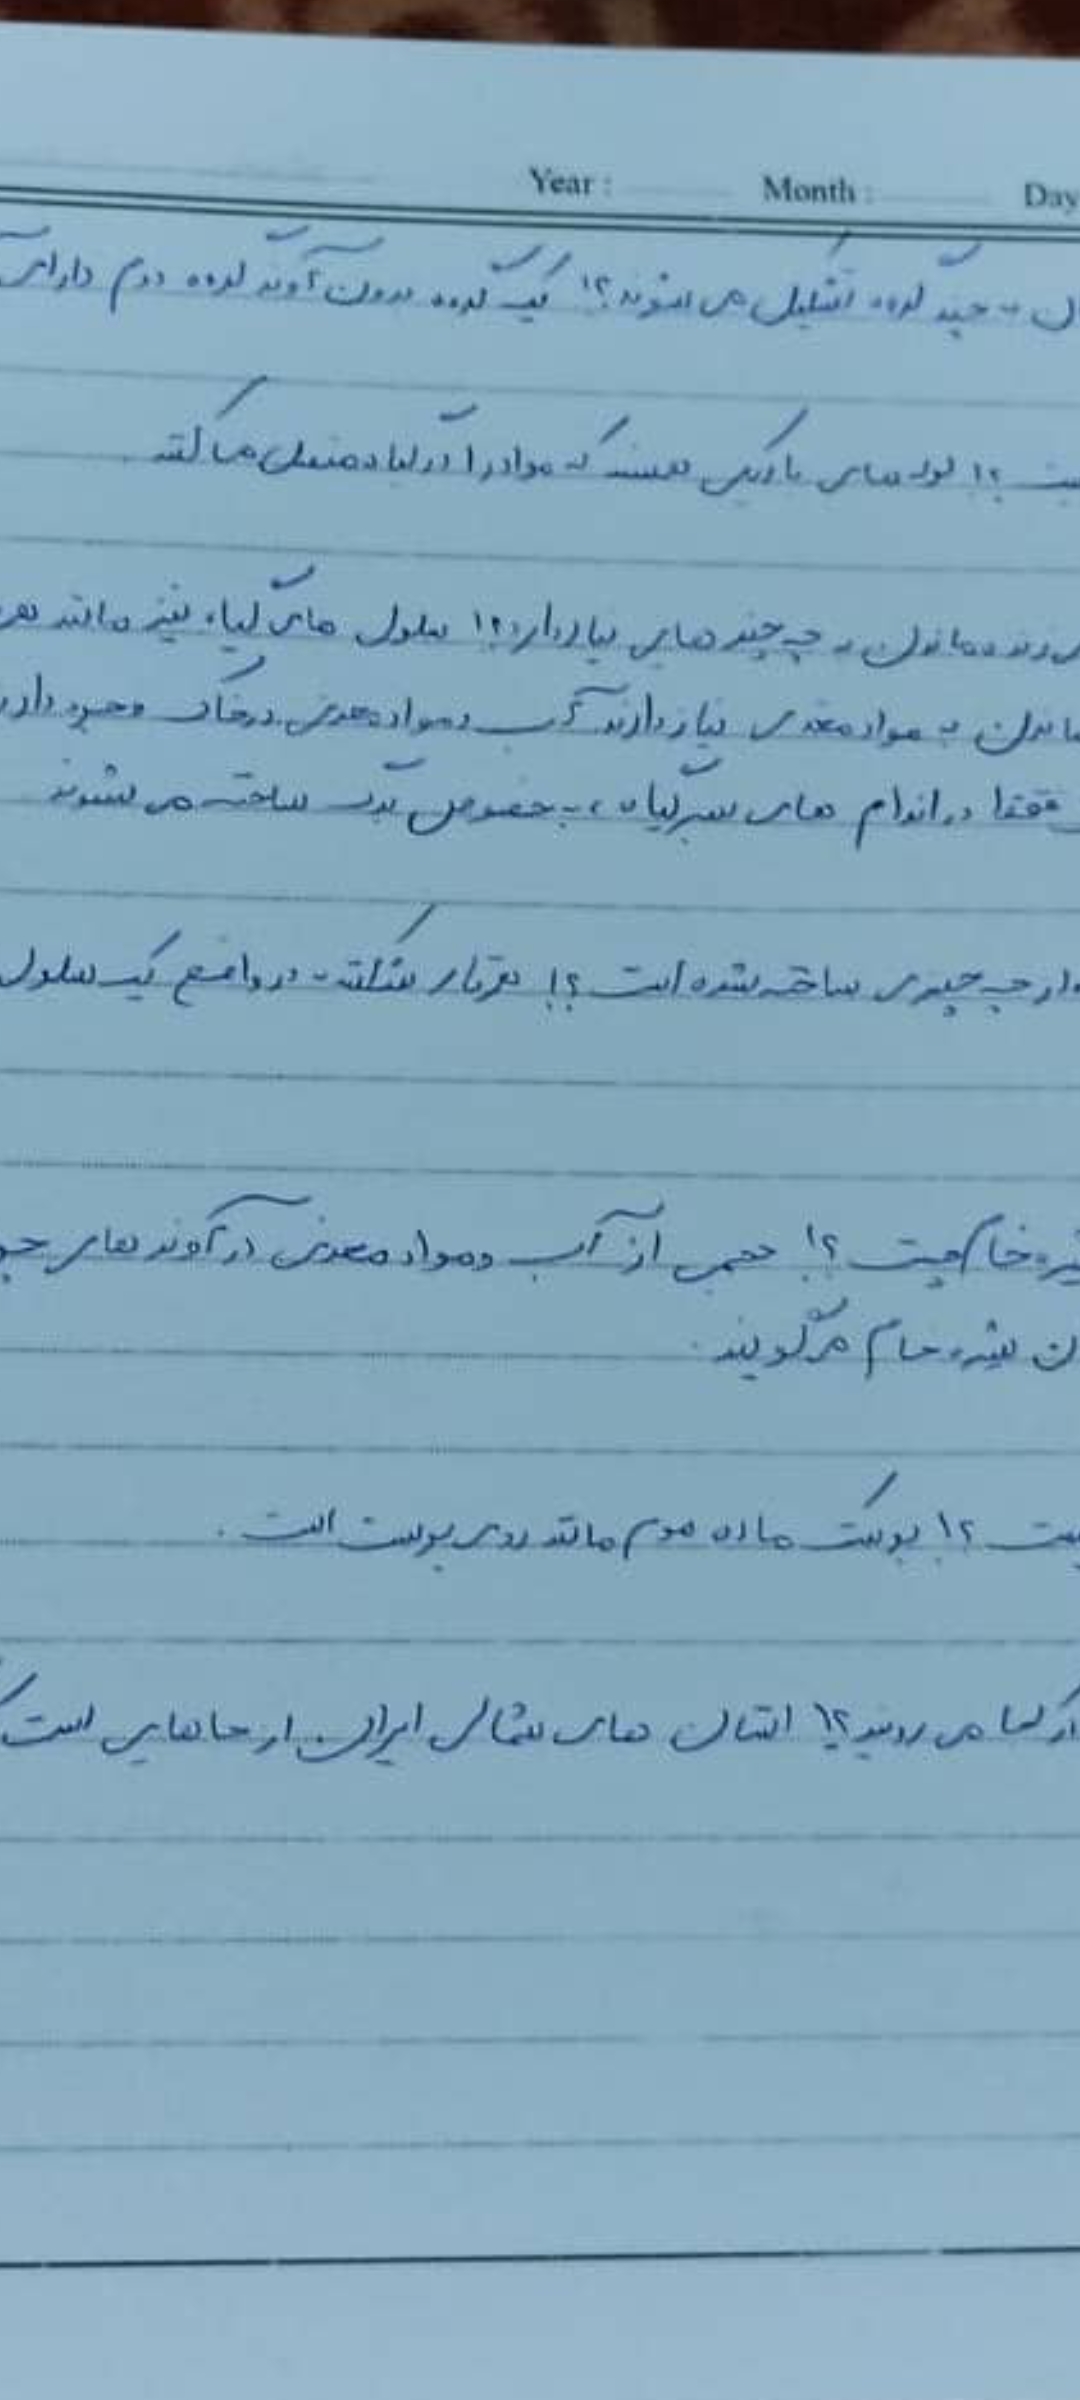 Year : Month : Day
به چند گروه تشکیل می شوند؟! یک گروه بدون آوند گروه دوم دارای
؟! لوله های باریکی هستند که مواد را در گیاه منتقل می کنند
زنده ماندن به چه چیز هایی نیاز دارد؟! سلول های گیاه نیز مانند
ماندن به مواد مغذی نیاز دارند آب و مواد معدنی در خاک وجود دارد
فقط در اندام های سبز گیاه ، به خصوص برگ ساخته می شوند
از چه چیزی ساخته شده است ؟! هر تار کشنده در واقع یک سلول
خام چیست ؟! حجمی از آب و مواد معدنی در آوند های
شیره خام می گویند .
؟! پوستک ماده موم مانند روی پوست است .
کجا می رویند؟! استان های شمالی ایران از جاهایی است